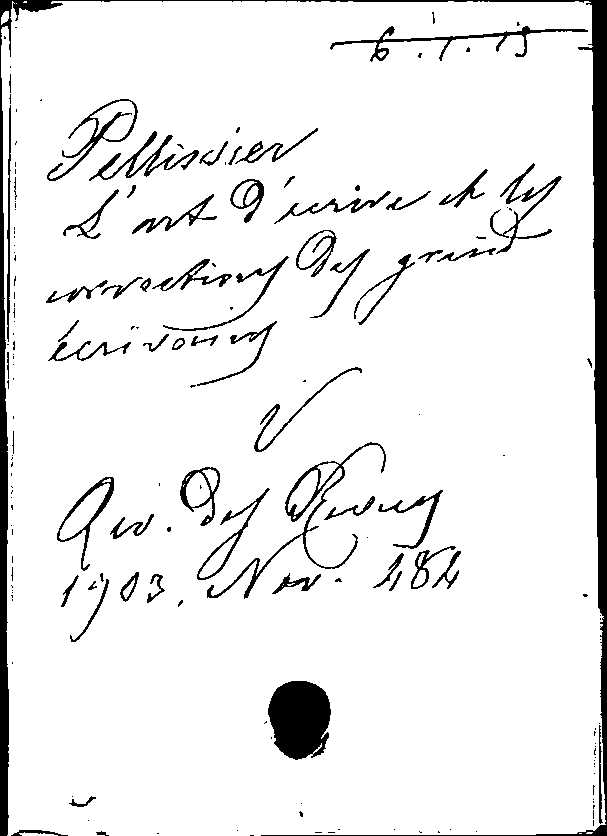 6.1.15
Pellissier
L'art d'écrire et les
corrections des grand
écrivains
V
Rev. des Revues
1903. Nov. 484